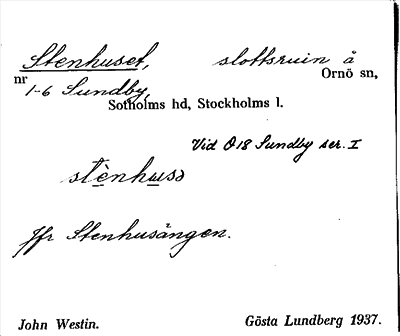 Stenhuset, slottsruin å
nr Ornö sn,
1-6 Sundby,
Sotholms hd, Stockholms l.
Vid Ö18 Sundby ser. I
stènhusə
Jfr Stenhusängen.
John Westin. Gösta Lundberg 1937.